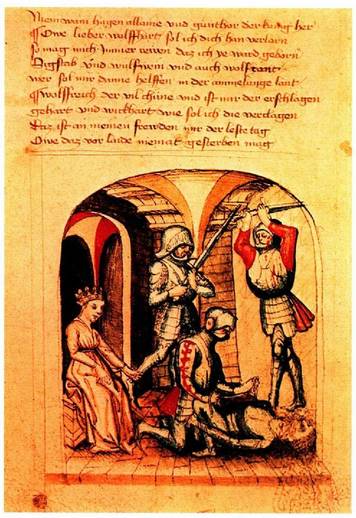 Niemwann hagen allaine vnd günthor der kunig her
Owe lieber wolffhart sol ich dich han verlorn
so mag mich ymmer rewen das ich ye ward geborn
Sigstab vnd wulfwein vnd auch wolfprant
wer sol mir danne helffen in der ammelunge lant
helffreich der vil chüne vnd ist mir der erschlagen
gerhart vnd wickhart wie sol ich die verclagen
Daz ist an meinen frewden mir der leste tag
Owe daz vor laide niemāt gesterben mag